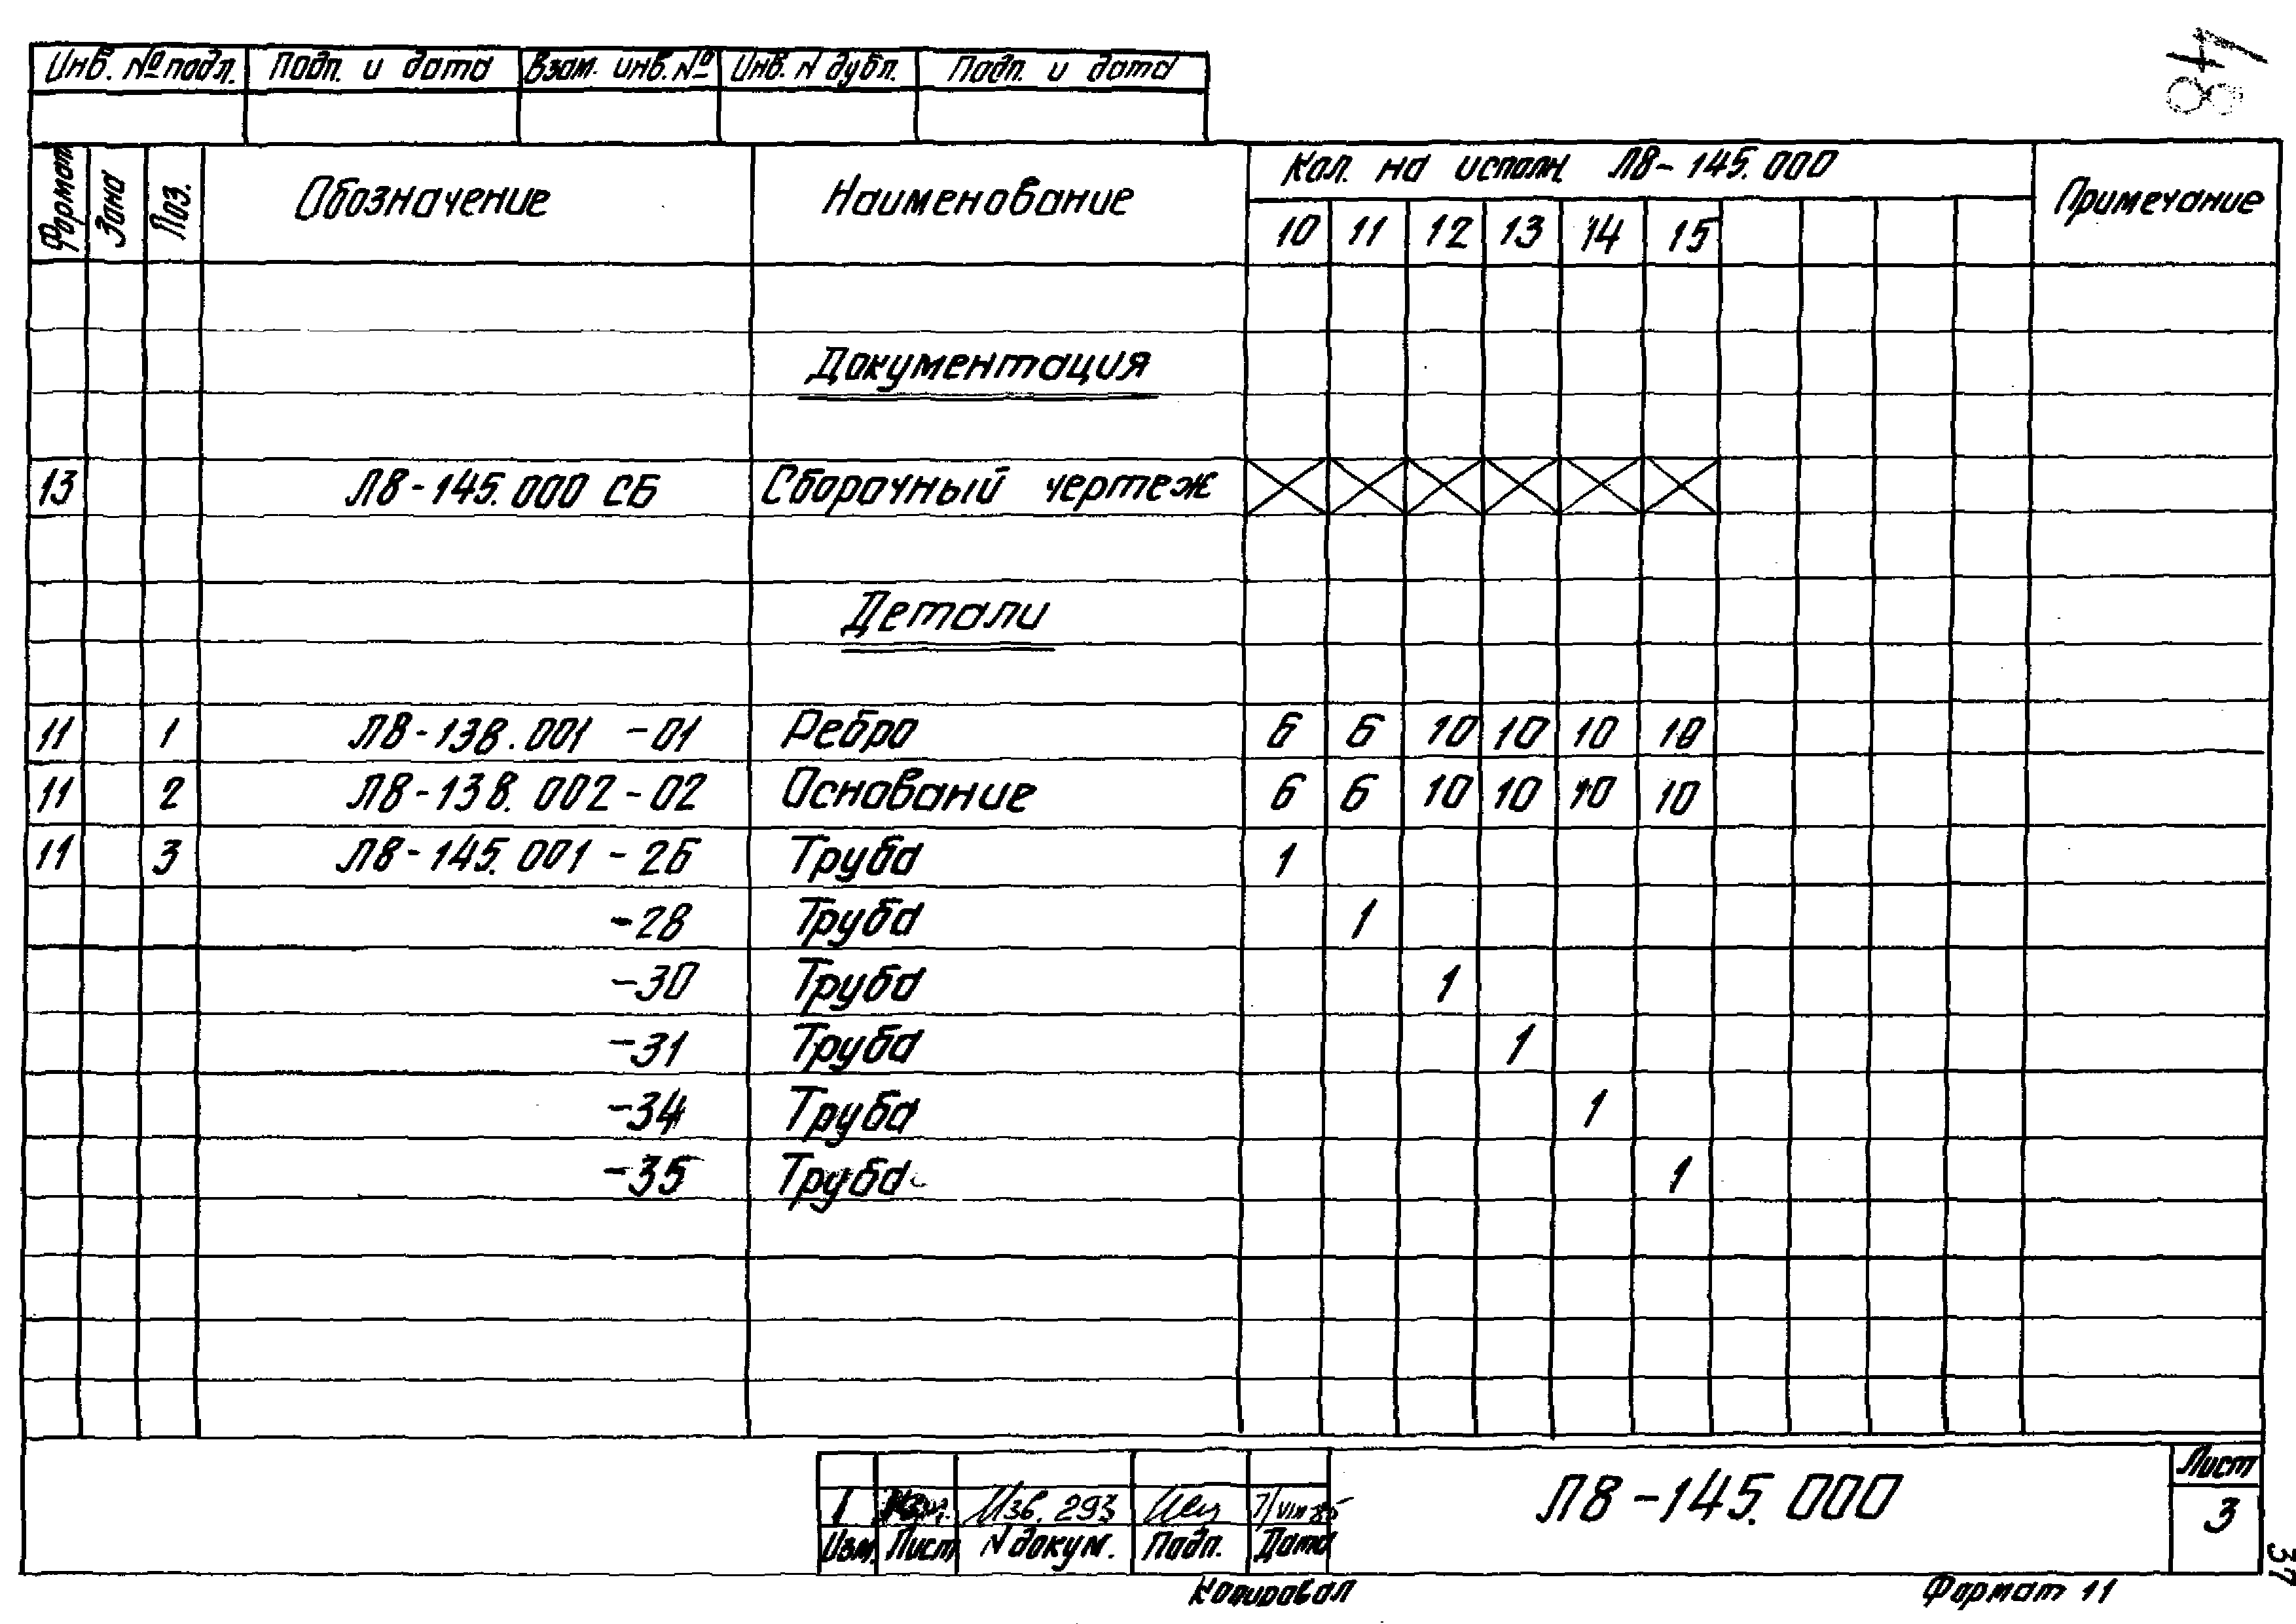 84
Инв. № подл. Подп. и дата Взам. инв. № Инв. N дубл. Подп. и дата
Формат Зона Поз. Обозначение Наименование Кол. на исполн. Л8-145.000 Примечание
10 11 12 13 14 15
Документация
13 Л8-145.000 СБ Сборочный чертеж
Детали
11 1 Л8-138.001 -01 Ребро 6 6 10 10 10 10
11 2 Л8-138.002-02 Основание 6 6 10 10 10 10
11 3 Л8-145.001 -26 Труба 1
-28 Труба 1
-30 Труба 1
-31 Труба 1
-34 Труба 1
-35 Труба 1
1 Изв. 293 7/VIII 85
Изм. Лист N докум. Подп. Дата
Л8-145.000
Лист
3
37
Копировал Формат 11